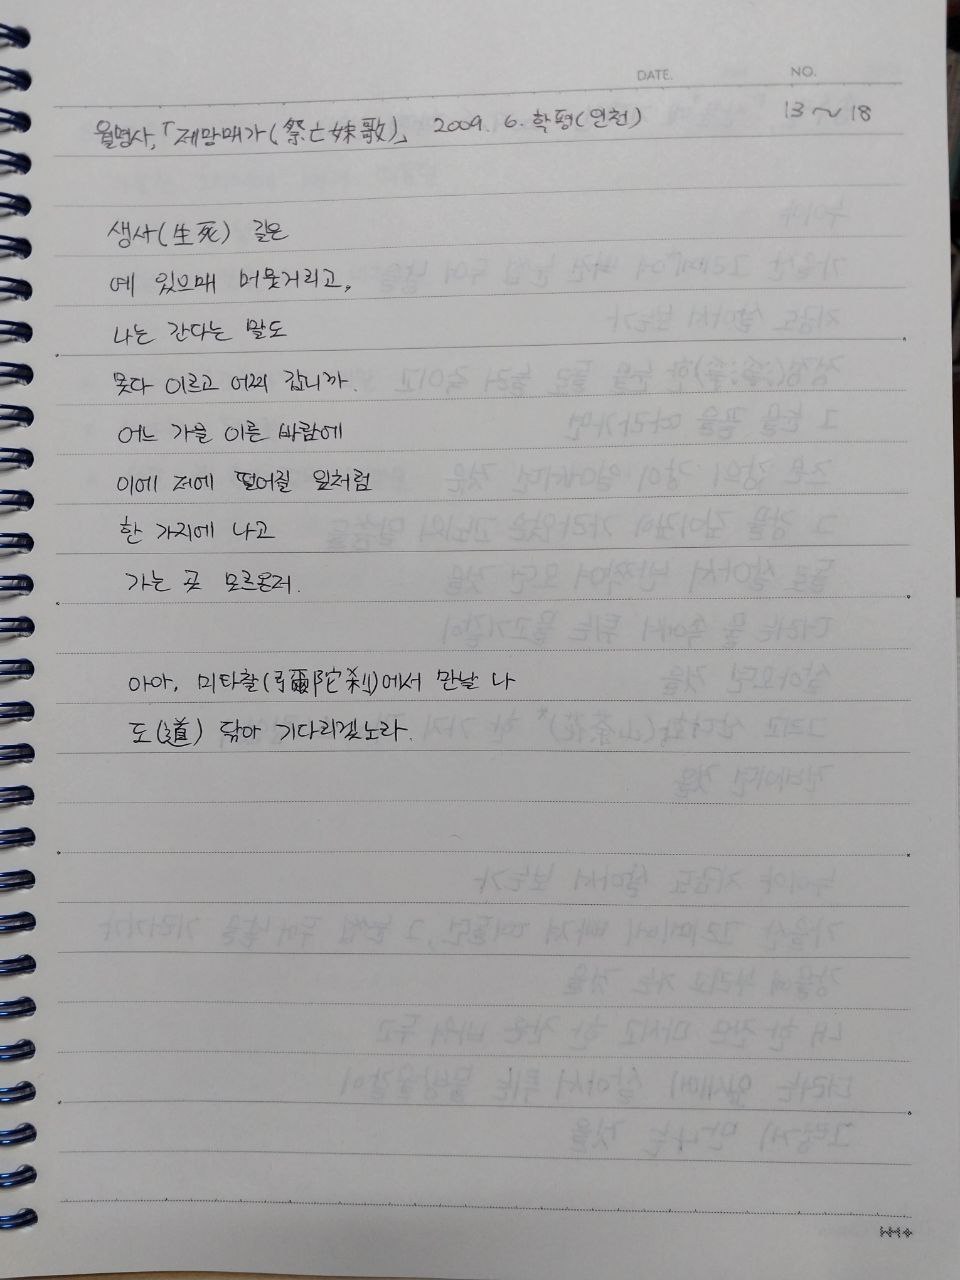 DATE. NO.
월명사, 「제망매가(祭亡妹歌)」 2009. 6. 학평(인천) 13~18
생사(生死) 길은
예 있으매 머뭇거리고,
나는 간다는 말도
못다 이르고 어찌 갑니까.
어느 가을 이른 바람에
이에 저에 떨어질 잎처럼
한 가지에 나고
가는 곳 모르온저.
아아, 미타찰(彌陀刹)에서 만날 나
도(道) 닦아 기다리겠노라.